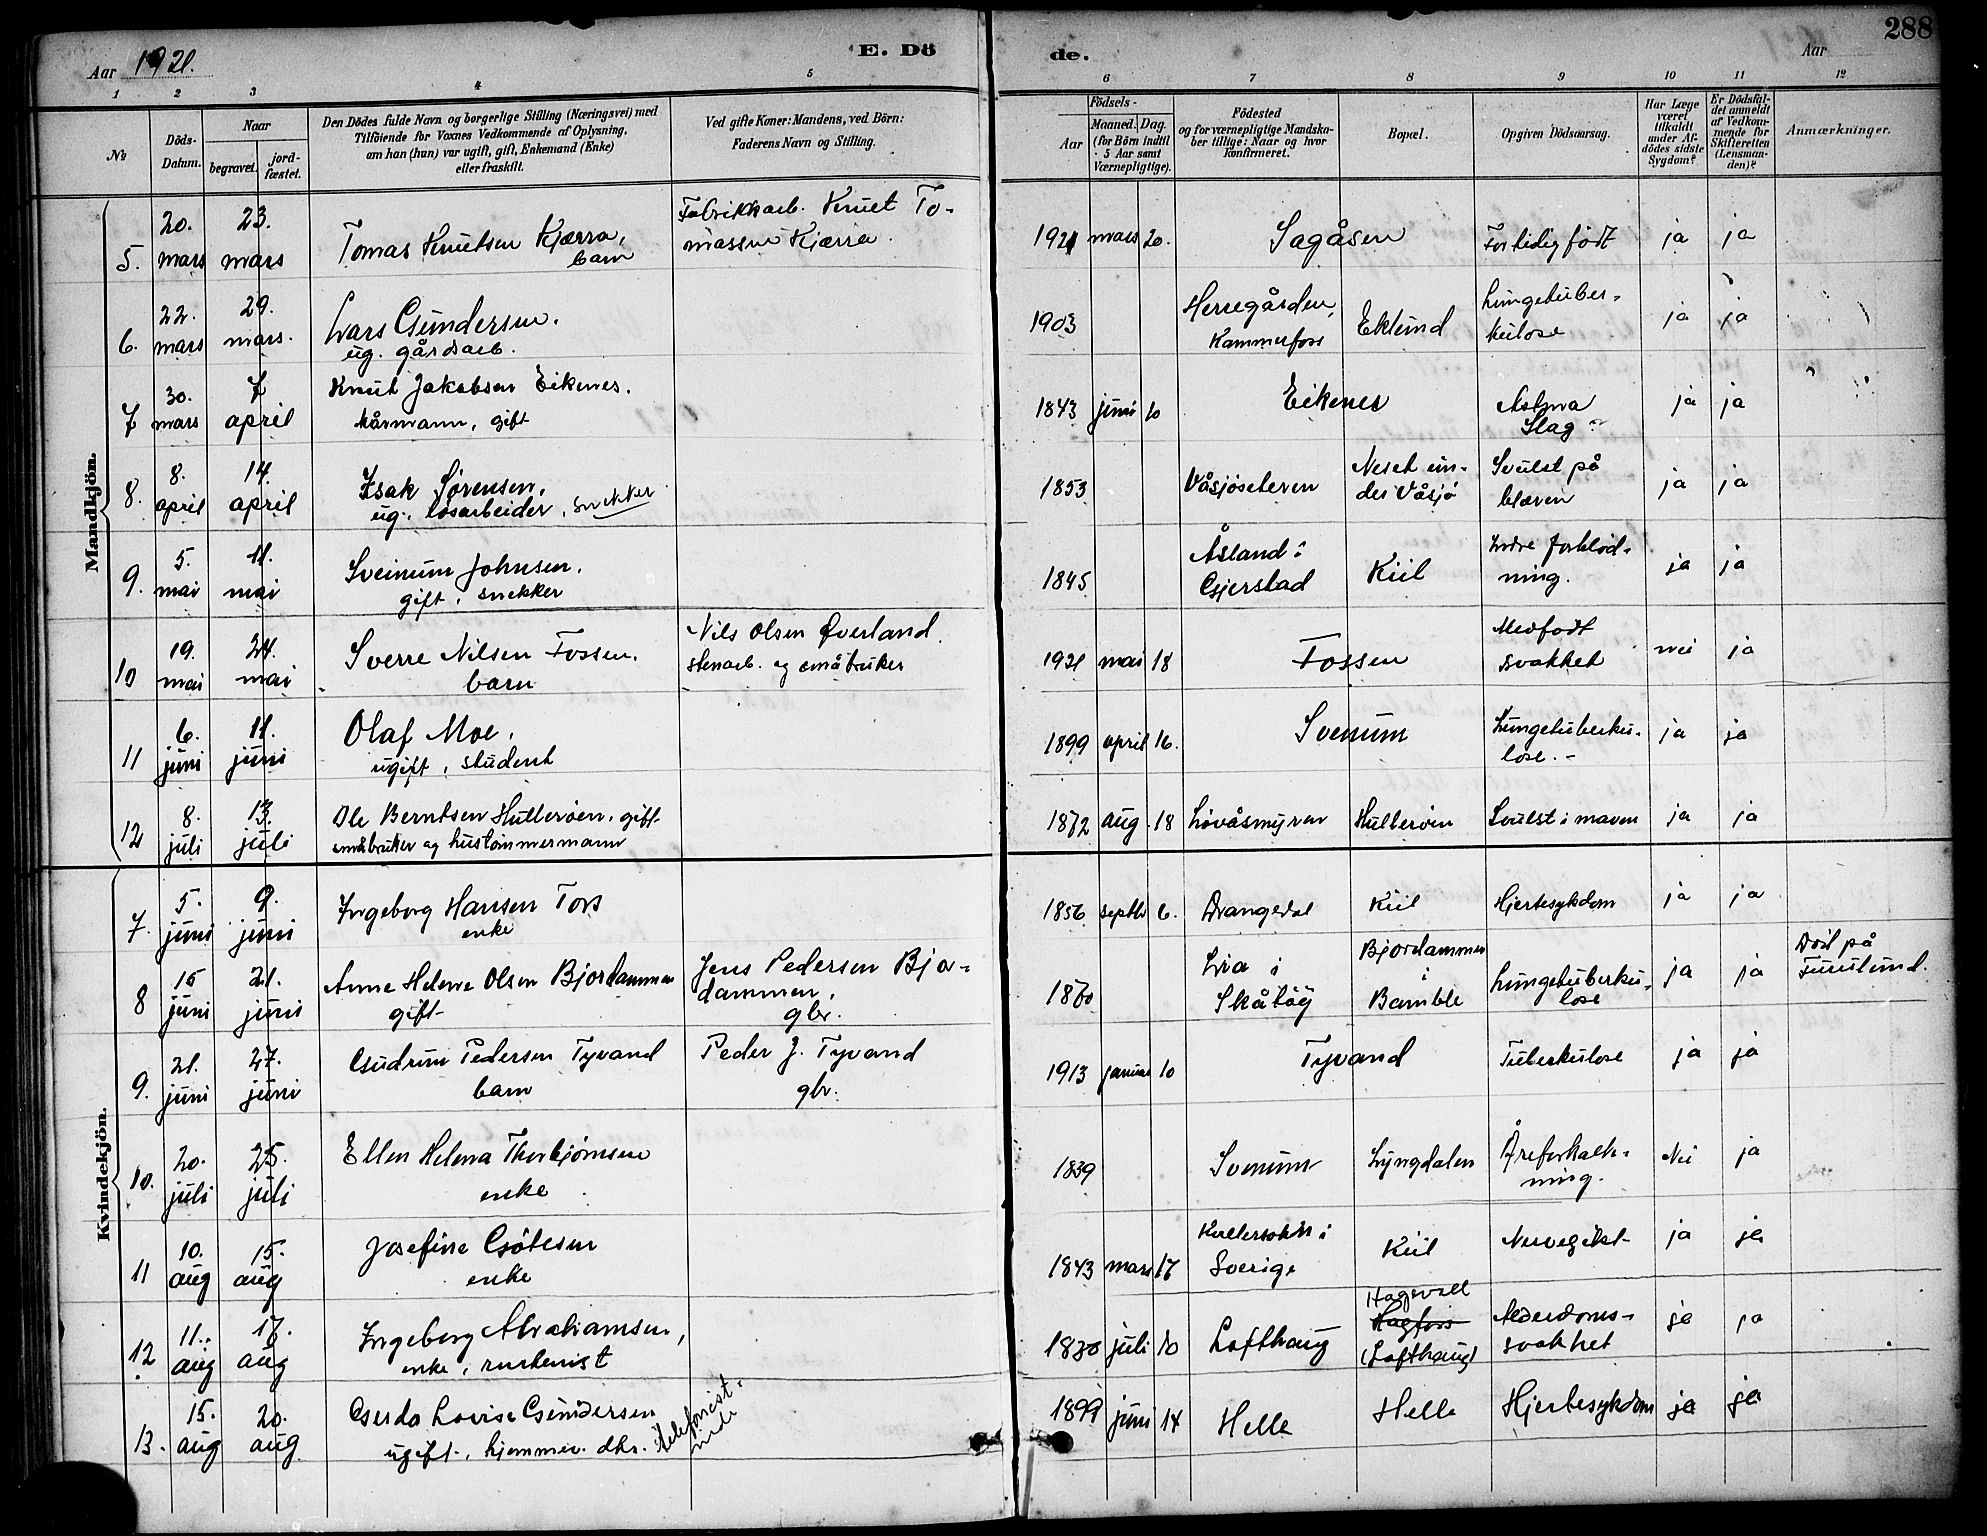 Aar 1921.
E. Dö
de.
Aar
288
1 2 3 4 5 6 7 8 9 10 11 12
№
Döds-Datum.
Naar
begravet.
jord-fæstet.
Den Dödes fulde Navn og borgerlige Stilling (Næringsvei) med
Tilföiende for Voxnes Vedkommende af Oplysning,
om han (hun) var ugift, gift, Enkemand (Enke)
eller fraskilt.
Ved gifte Koner: Mandens, ved Börn:
Faderens Navn og Stilling.
Födsels-
Aar
Maaned. Dag.
(for Börn indtil
5 Aar samt
Værnepligtige).
Födested
og for værnepligtige Mandska-
ber tillige: Naar og hvor
konfirmeret.
Bopæl.
Opgiven Dödsaarsag.
Har Læge
været
tilkaldt
under Af-
dödes sidste
Sygdom?
Er Dödsfal-
det anmeldt
af Vedkom-
mende for
Skifteretten
(Lensman-
den)?
Anmærkninger.
Mandkjön.
5. 20. mars 23. mars Tomas Knutsen Kjærra, barn Fabrikkarb. Knut To-
massen Kjærra. 1921 mars 20. Sagåsen For tidlig født ja ja
6. 22. mars 29. mars. Lars Gundersen.
ug. gårdsarb. 1903 Herregården,
Kammerfoss Eklund Lungetuber-
kulose ja ja
7 30. mars 7 april Knut Jakobsen Eikenes.
kårmann, gift 1843 juni 10 Eikenes Astma
Slag ja ja
8. 8. april 14. april Isak Sørensen,
ug., løsarbeider, snekker 1853 Våsjøseteren Neset un-
der Våsjø Svulst på
blæren ja ja
9. 5. mai 11. mai Sveinum Johnsen.
gift, snekker 1845 Åsland i
Gjerstad Kiil Indre forblød-
ning. ja ja
10 19. mai 24. mai Sverre Nilsen Fossen.
barn Nils Olsen Øverland.
stenarb. og småbruker 1921 mai 18 Fossen Medfødt
svakhet nei ja
11 6. juni 11. juni Olaf Moe,
ugift, student 1899 april 16. Svenum Lungetuberku-
lose. - ja ja
12 8. juli 13. juli Ole Berntsen Hulterøen, gift
småbruker og hustømmermann 1872 aug. 18 Løvåsmyren Hulterøen Svulst i maven ja ja
Kvindekjön.
7. 5. juni 9. juni Ingeborg Hansen Tors
enke 1856 septbr 6. Drangedal Kiil Hjertesykdom ja ja
8 15 juni 21. juni Anne Helene Olsen Bjordammen
gift Jens Pedersen Bjor-
dammen,
gbr. 1870 Lia i
Skåtøy Bjordammen
i
Bamble Lungetuberku-
lose ja ja Død på
Furulund.
9. 21. juni 27. juni Gudrun Pedersen Tyvand
barn Peder J. Tyvand
gbr. 1913 januar 10 Tyvand Tuberkulose ja ja
10. 20. juli 25. juli Ellen Helena Thorbjørnsen
enke 1839 Svenum Lyngdalen Åreforkalk-
ning. Nei ja
11 10. aug 15. aug Josefine Gøtesen
enke 1843 mars 17 Sverige Kiil Nervegikt ja ja
12 11. aug 17. aug Ingeborg Abrahamsen,
enke, rentenist 1830 juli 10 Lofthaug Hagevald
Hagfoss
(Lofthaug) Alderdoms-
svakhet ja ja
13. 15. aug 20. aug Gerda Lovise Gundersen
ugift, hjemmev. dtr. telefonist. 1899 juni 14 Helle Helle Hjertesykdom ja ja